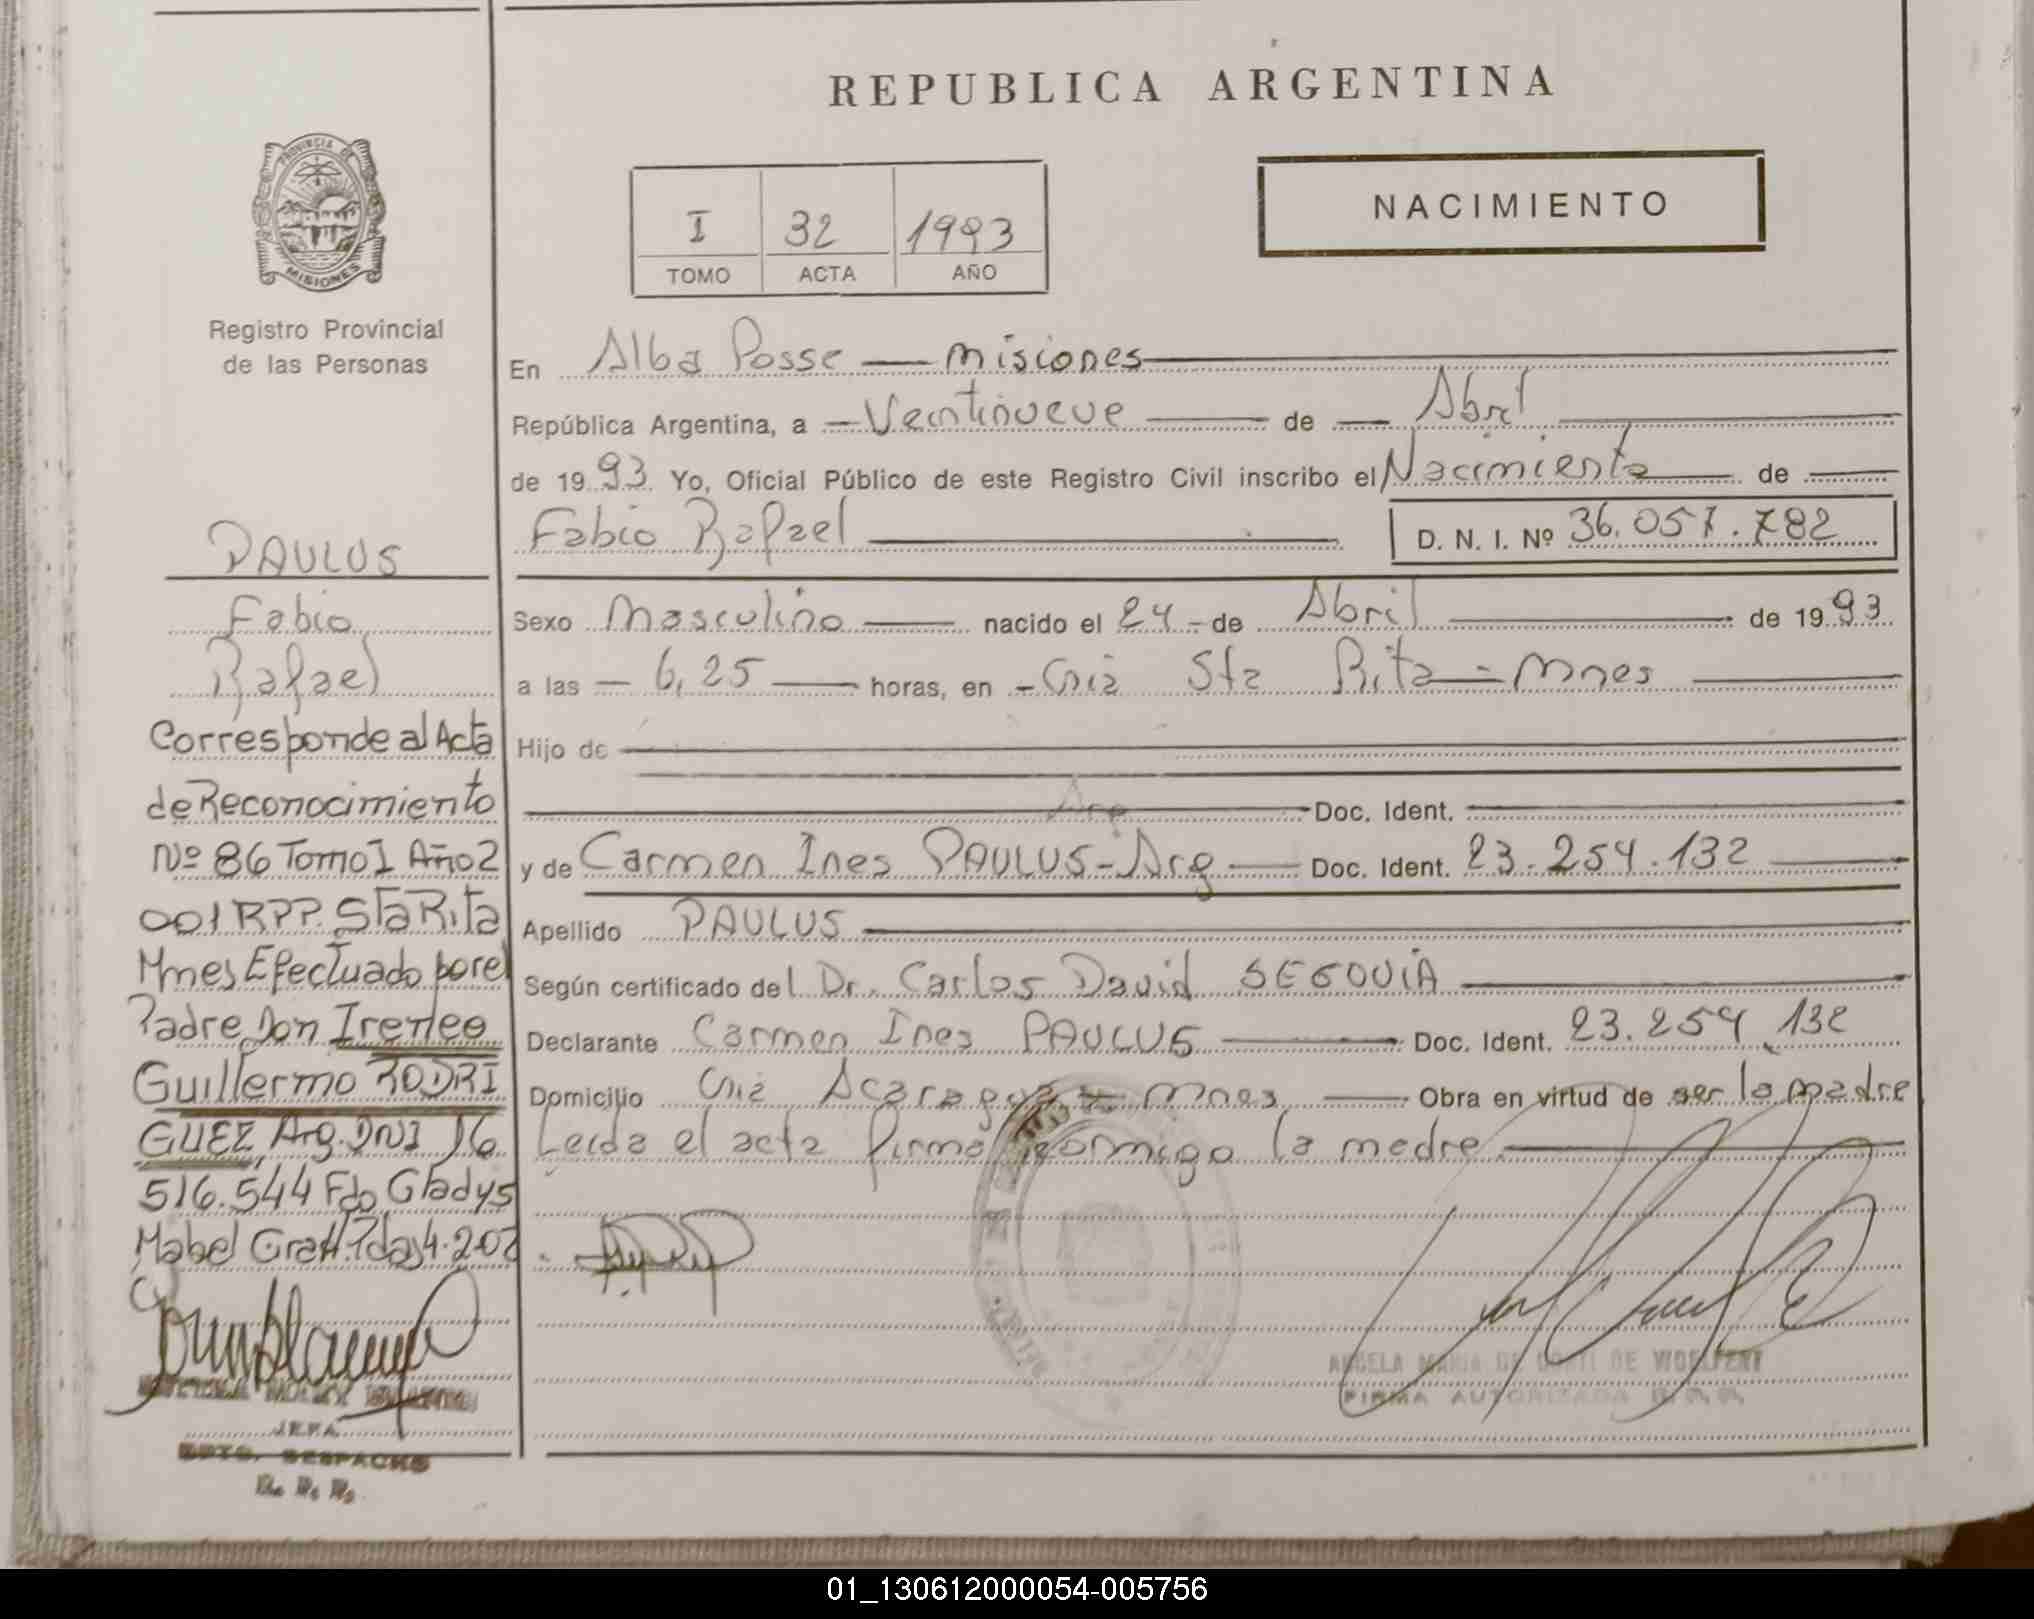 REPUBLICA ARGENTINA
PROVINCIA DE
MISIONES
Registro Provincial
de las Personas
I 32 1993
TOMO ACTA AÑO
NACIMIENTO
En Alba Posse — Misiones
República Argentina, a — Veintinueve — de — Abril
de 1993. Yo, Oficial Público de este Registro Civil inscribo el Nacimiento — de
Fabio Rafael — D. N. I. Nº 36.057.782
Sexo Masculino — nacido el 24 - de Abril — de 1993
a las — 6,25 — horas, en - Cnia Sta Rita - Mnes
Hijo de
Arg
Doc. Ident.
y de Carmen Ines PAULUS - Arg — Doc. Ident. 23.254.132
Apellido PAULUS
Según certificado del Dr. Carlos David SEGOVIA
Declarante Carmen Ines PAULUS — Doc. Ident. 23.254.132
Domicilio Cnia Acaragua - Mnes — Obra en virtud de ser la madre
Leida el acta firma conmigo la madre.
PAULUS
Fabio
Rafael
Corresponde al Acta
de Reconocimiento
Nº 86 Tomo I Año 2
001 RPP. Sta Rita
Mnes Efectuado por el
Padre Don Ireneo
Guillermo RODRI
GUEZ, Arg. DNI 16.
516.544 Fdo Gladys
Mabel Pdas 4-2-02
JEFA
DPTO. DESPACHO
R. P. P.
ANGELA MARIA DE CONTI DE
FIRMA AUTORIZADA R. P. P.
01_130612000054-005756